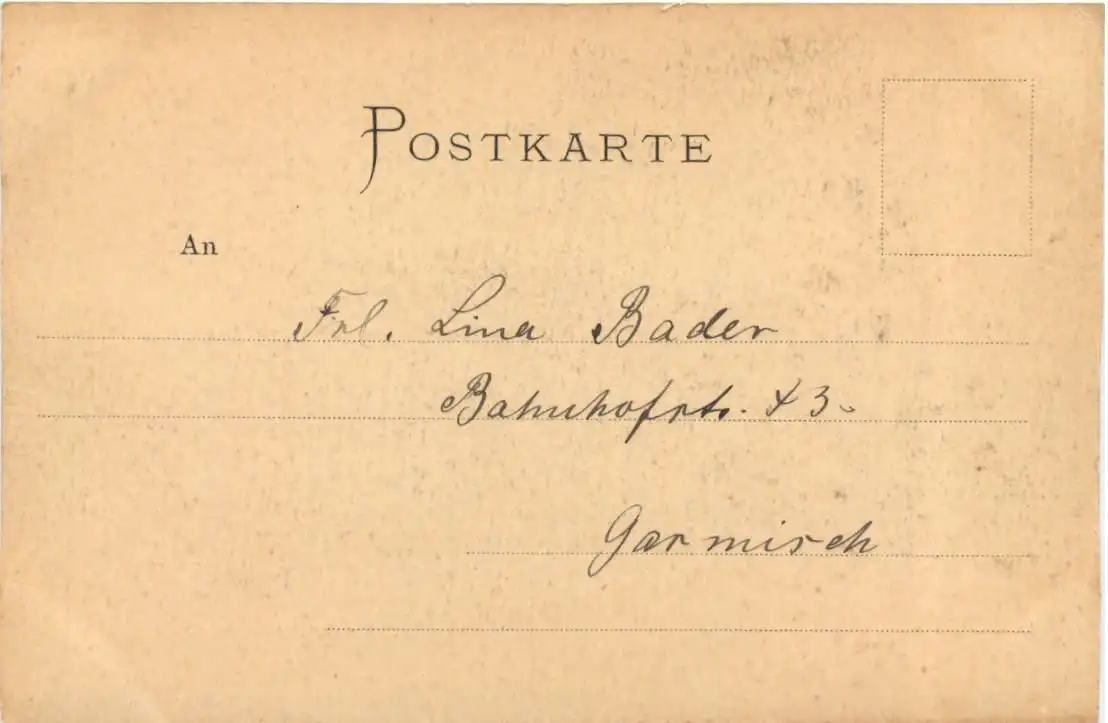 POSTKARTE
An
Frl. Lina Bader
Bahnhofstr. 43.
Garmisch